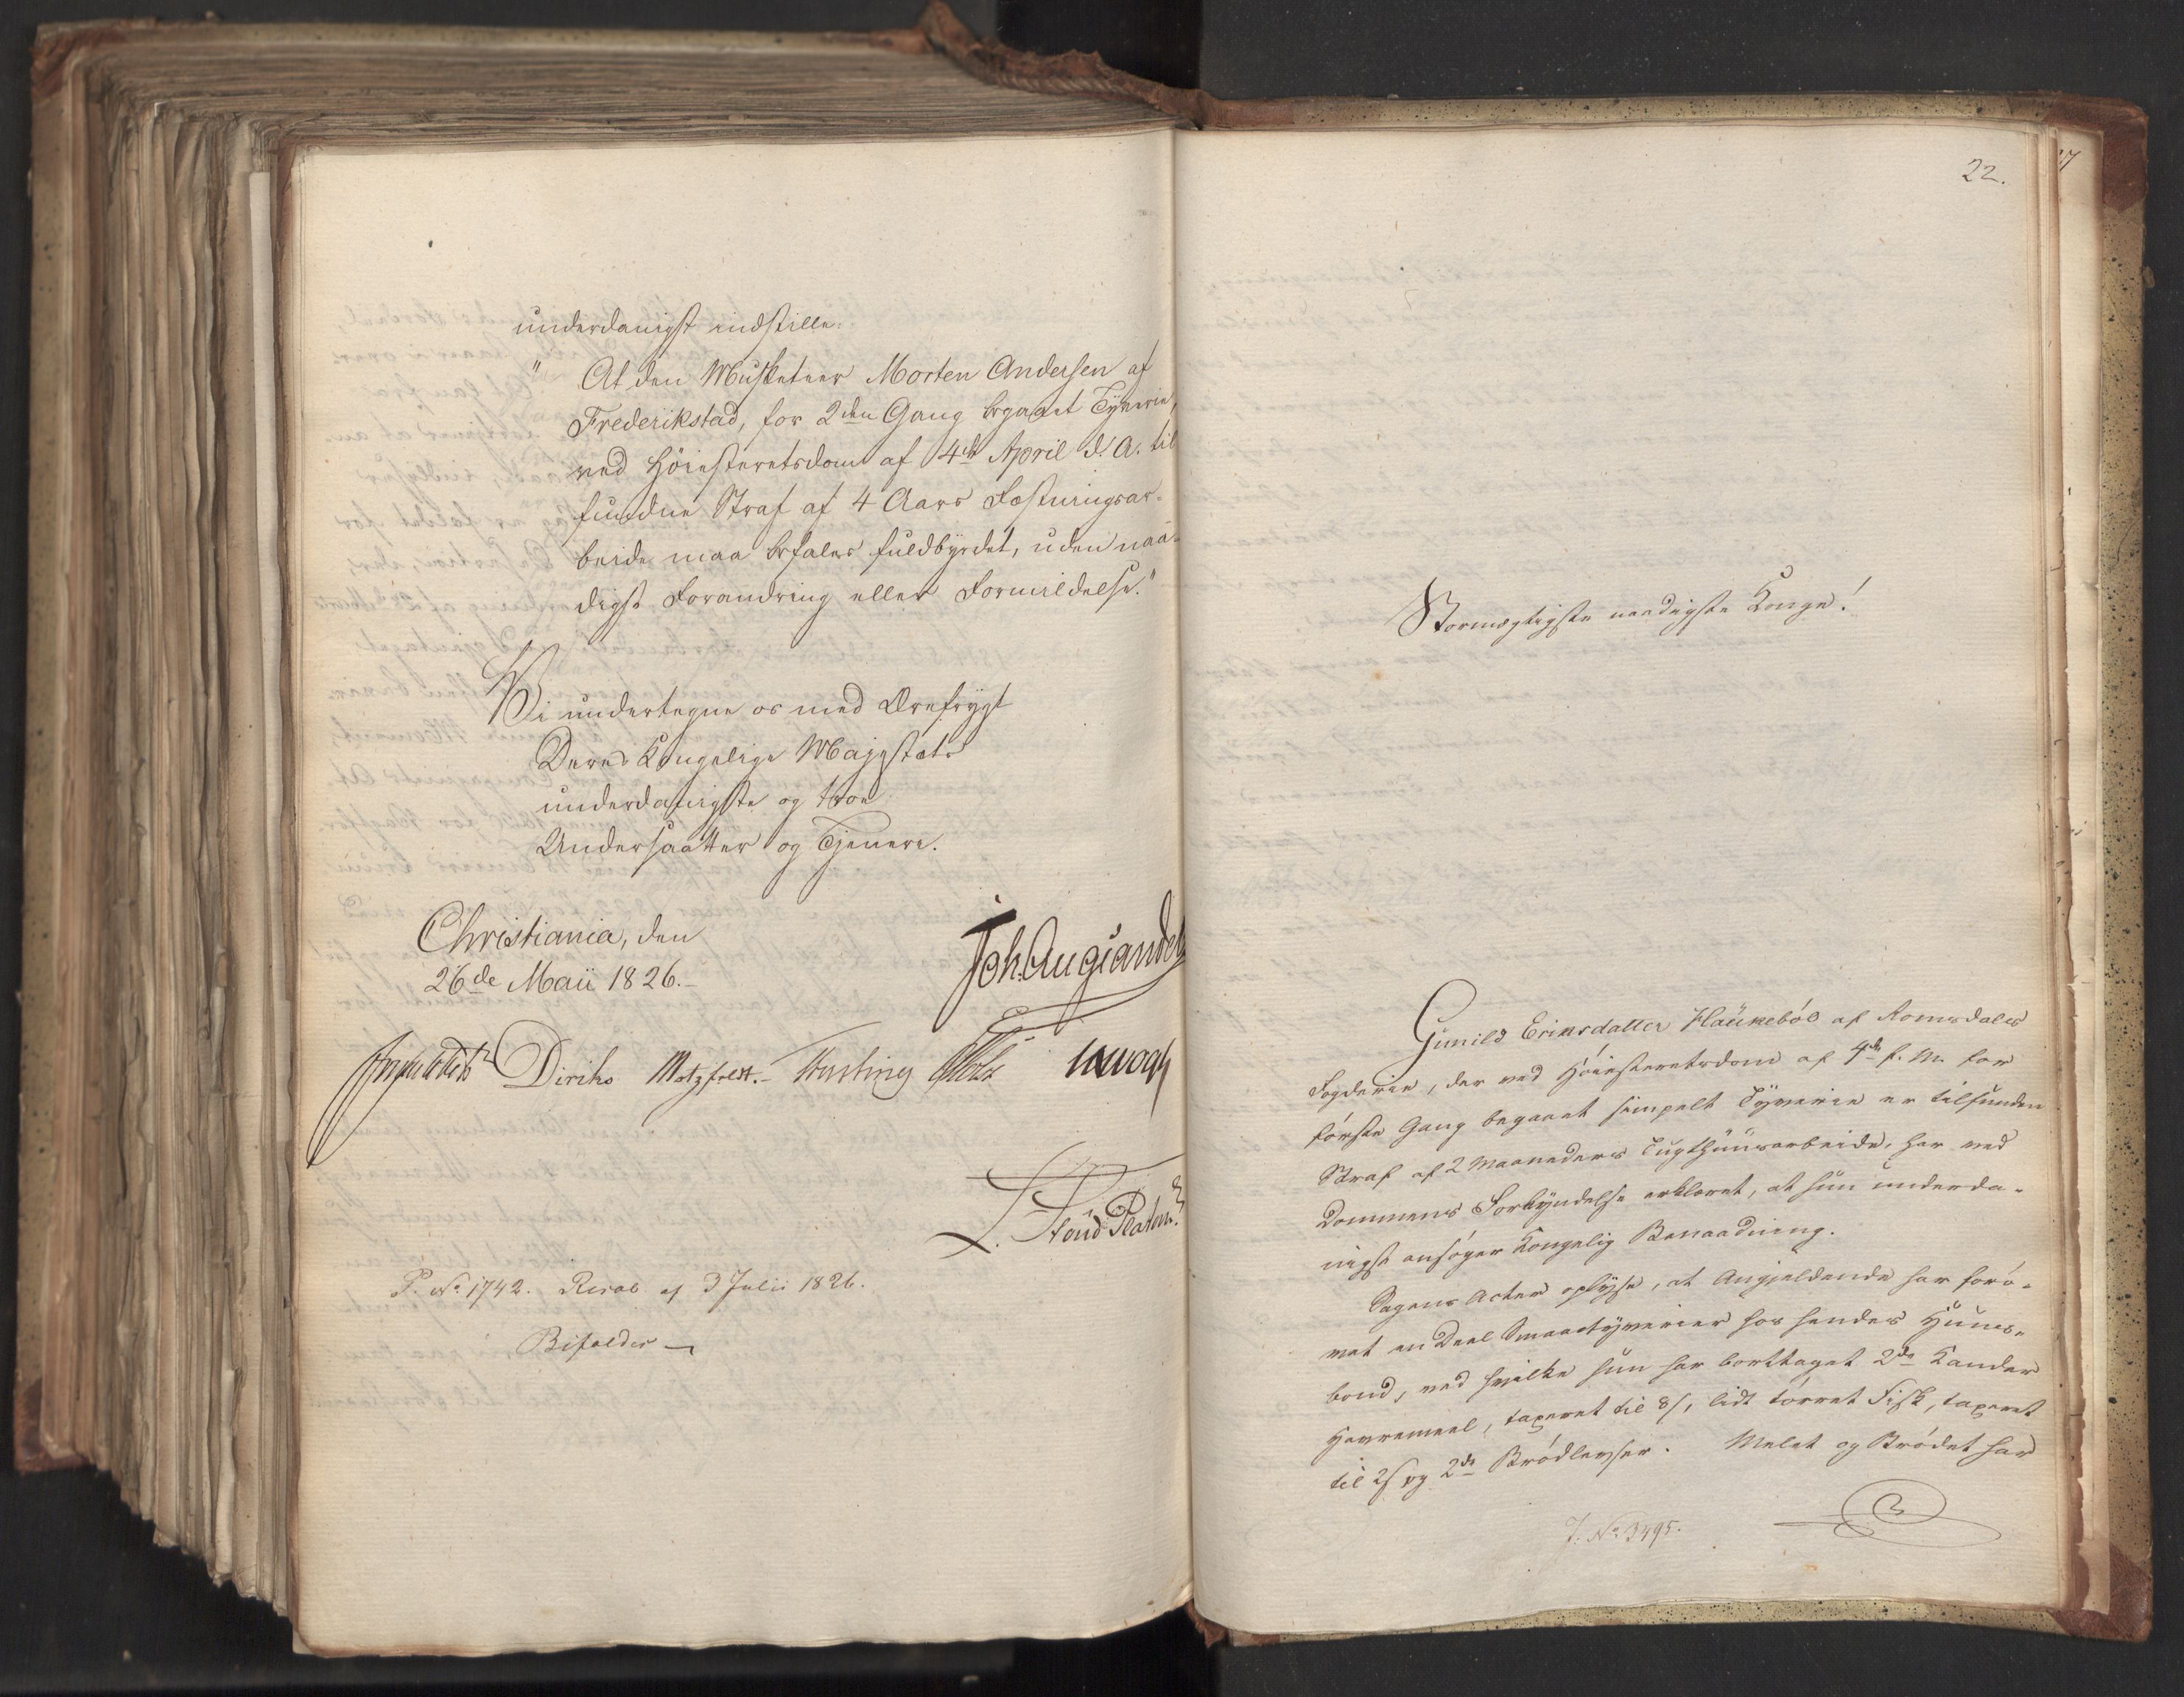 underdanigst indstille:
" At den Musketeer Morten Andersen af
Frederikstad, for 2den Gang begaaet Tyverie,
ved Höiesteretsdom af 4de April d. A. til
fundne Straf af 4 Aars Fæstningsar-
beide maa befales fuldbyrdet, uden naa-
digst Forandring eller Formildelse."
Vi undertegne os med Ærefrygt
Deres Kongelige Majestæts
underdanigste og troe
Undersaatter og Tjenere.
Christiania, den
26de Maii 1826.
Joh. Aug Sandels
Diriks Motzfeldt. Fasting
L. Stoud Platou
P. No. 1742. Resol af 3 Julii 1826.
Bifaldes
22.
17
Stormægtigste naadigste Konge!
Gunild Eriksdatter Haukeböe af Romsdales
Fogderie, der ved Höiesteretsdom af 4de f. M. for
förste Gang begaaet simpelt Tyverie er tilfunden
Straf af 2 Maaneders Tugthuusarbeide, har ved
Dommens Forkyndelse erklæret, at hun underda-
nigst ansöger Kongelig Benaadning.
Sagens Acter oplyse, at Angjeldende har forö-
vet en Deel Smaaetyverier hos hendes Huus-
bond, ved hvilke hun har borttaget 2de Kander
Havremeel, taxeret til 8 s, lidt törret Fisk, taxeret
til 2 s og 2de Brödlevser. Melet og Brödet har
J. No 3495.